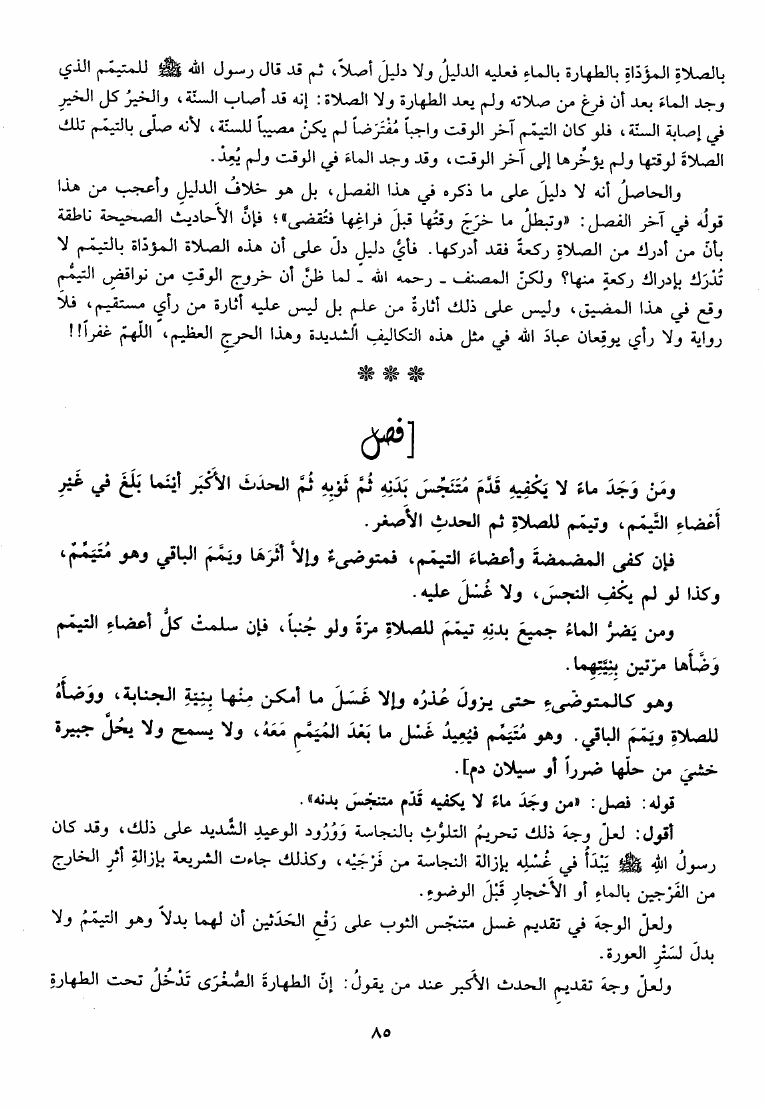 بالصلاةِ المؤدّاةِ بالطهارة بالماءِ فعليه الدليلُ ولا دليلَ أصلاً، ثم قد قال رسول الله ﷺ للمتيمّم الذي
وجد الماءَ بعد أن فرغ من صلاته ولم يعد الطهارة ولا الصلاة: إنه قد أصاب السنّة، والخيرُ كل الخيرِ
في إصابة السنّة، فلو كان التيمّم آخر الوقت واجباً مُفْتَرَضاً لم يكنْ مصيباً للسنّة، لأنه صلّى بالتيمّم تلك
الصلاةَ لوقتها ولم يؤخِّرها إلى آخر الوقت، وقد وجد الماءَ في الوقت ولم يُعِدْ.
والحاصلُ أنه لا دليلَ على ما ذكره في هذا الفصل، بل هو خلافُ الدليلِ وأعجب من هذا
قولُه في آخر الفصل: «وتبطلُ ما خرَجَ وقتُها قبلَ فراغِها فتُقضى»؛ فإنَّ الأحاديث الصحيحة ناطقة
بأنّ من أدرك من الصلاةِ ركعةً فقد أدركها. فأيُّ دليلٍ دلّ على أن هذه الصلاة المؤدّاة بالتيمّم لا
تُدْرَك بإدراك ركعةٍ منها؟ ولكنّ المصنف ـ رحمه الله ـ لما ظنَّ أن خروج الوقتِ من نواقض التيمُّم
وقع في هذا المضيق، وليس على ذلك أثارةٌ من علم بل ليس عليه أثارة من رأيٍ مستقيم، فلا
رواية ولا رأي يوقِعان عبادَ الله في مثل هذه التكاليفِ الشديدة وهذا الحرجِ العظيم، اللّهمّ غفراً!!
❊ ❊ ❊
[فصل
ومَنْ وَجَدَ ماءً لا يَكْفِيهِ قَدَّمَ مُتَنَجِّسَ بَدَنِهِ ثُمَّ ثَوْبِهِ ثُمَّ الحدَثَ الأكْبَر أيْنَما بَلَغَ في غَيْرِ
أَعْضاءِ التَّيمّم، وتيمّم للصلاةِ ثم الحدثِ الأصغر.
فإن كفى المضمضةَ وأعضاءَ التيمّم، فمتوضىءٌ وإلاَّ أثَرَهَا ويَمَّمَ الباقي وهو مُتَيَمِّمٌ،
وكذا لو لم يكْفِ النجسَ، ولا غُسْلَ عليه.
ومن يَضرُّ الماءُ جميعَ بدنِهِ تيمّمَ للصلاةِ مرّةً ولو جُنباً، فإن سلمتْ كلُّ أعضاءِ التيمّم
وَضَّأها مرّتين بِنِيَّتِهِما.
وهو كالمتوضّىءِ حتى يزولَ عُذرُه وإلا غَسَلَ ما أمكن مِنْها بِنِيّةِ الجنابة، ووَضأهُ
للصلاةِ ويَمّمَ الباقي. وهو مُتَيَمِّم فيُعِيدُ غَسْل ما بَعْدَ المُيَمَّمِ مَعَهُ، ولا يسمح ولا يحُلَّ جبيرة
خشيَ من حلّها ضرراً أو سيلان دم].
قوله: فصل: «من وجَدَ ماءً لا يكفيه قَدّم متنجّسَ بدنه».
أقول: لعلّ وجهَ ذلك تحريمُ التلوُّثِ بالنجاسة وَوُرُود الوعيدِ الشَّديد على ذلك، وقد كان
رسولُ الله ﷺ يَبْدَأُ في غُسْلِه بإزالة النجاسة من فَرْجَيْه، وكذلك جاءت الشريعة بإزالةِ أثرِ الخارج
من الفَرْجين بالماءِ أو الأحْجارِ قَبْلَ الوضوءِ.
ولعلّ الوجهَ في تقديم غسل متنجّس الثوب على رَفْعِ الحَدَثين أن لهما بدلاً وهو التيمّمُ ولا
بدلَ لسَتْرِ العورة.
ولعلّ وجهَ تقديمِ الحدث الأكبر عند من يقولُ: إنّ الطهارةَ الصُّغْرَى تَدْخُلُ تحت الطهارةِ
٨٥